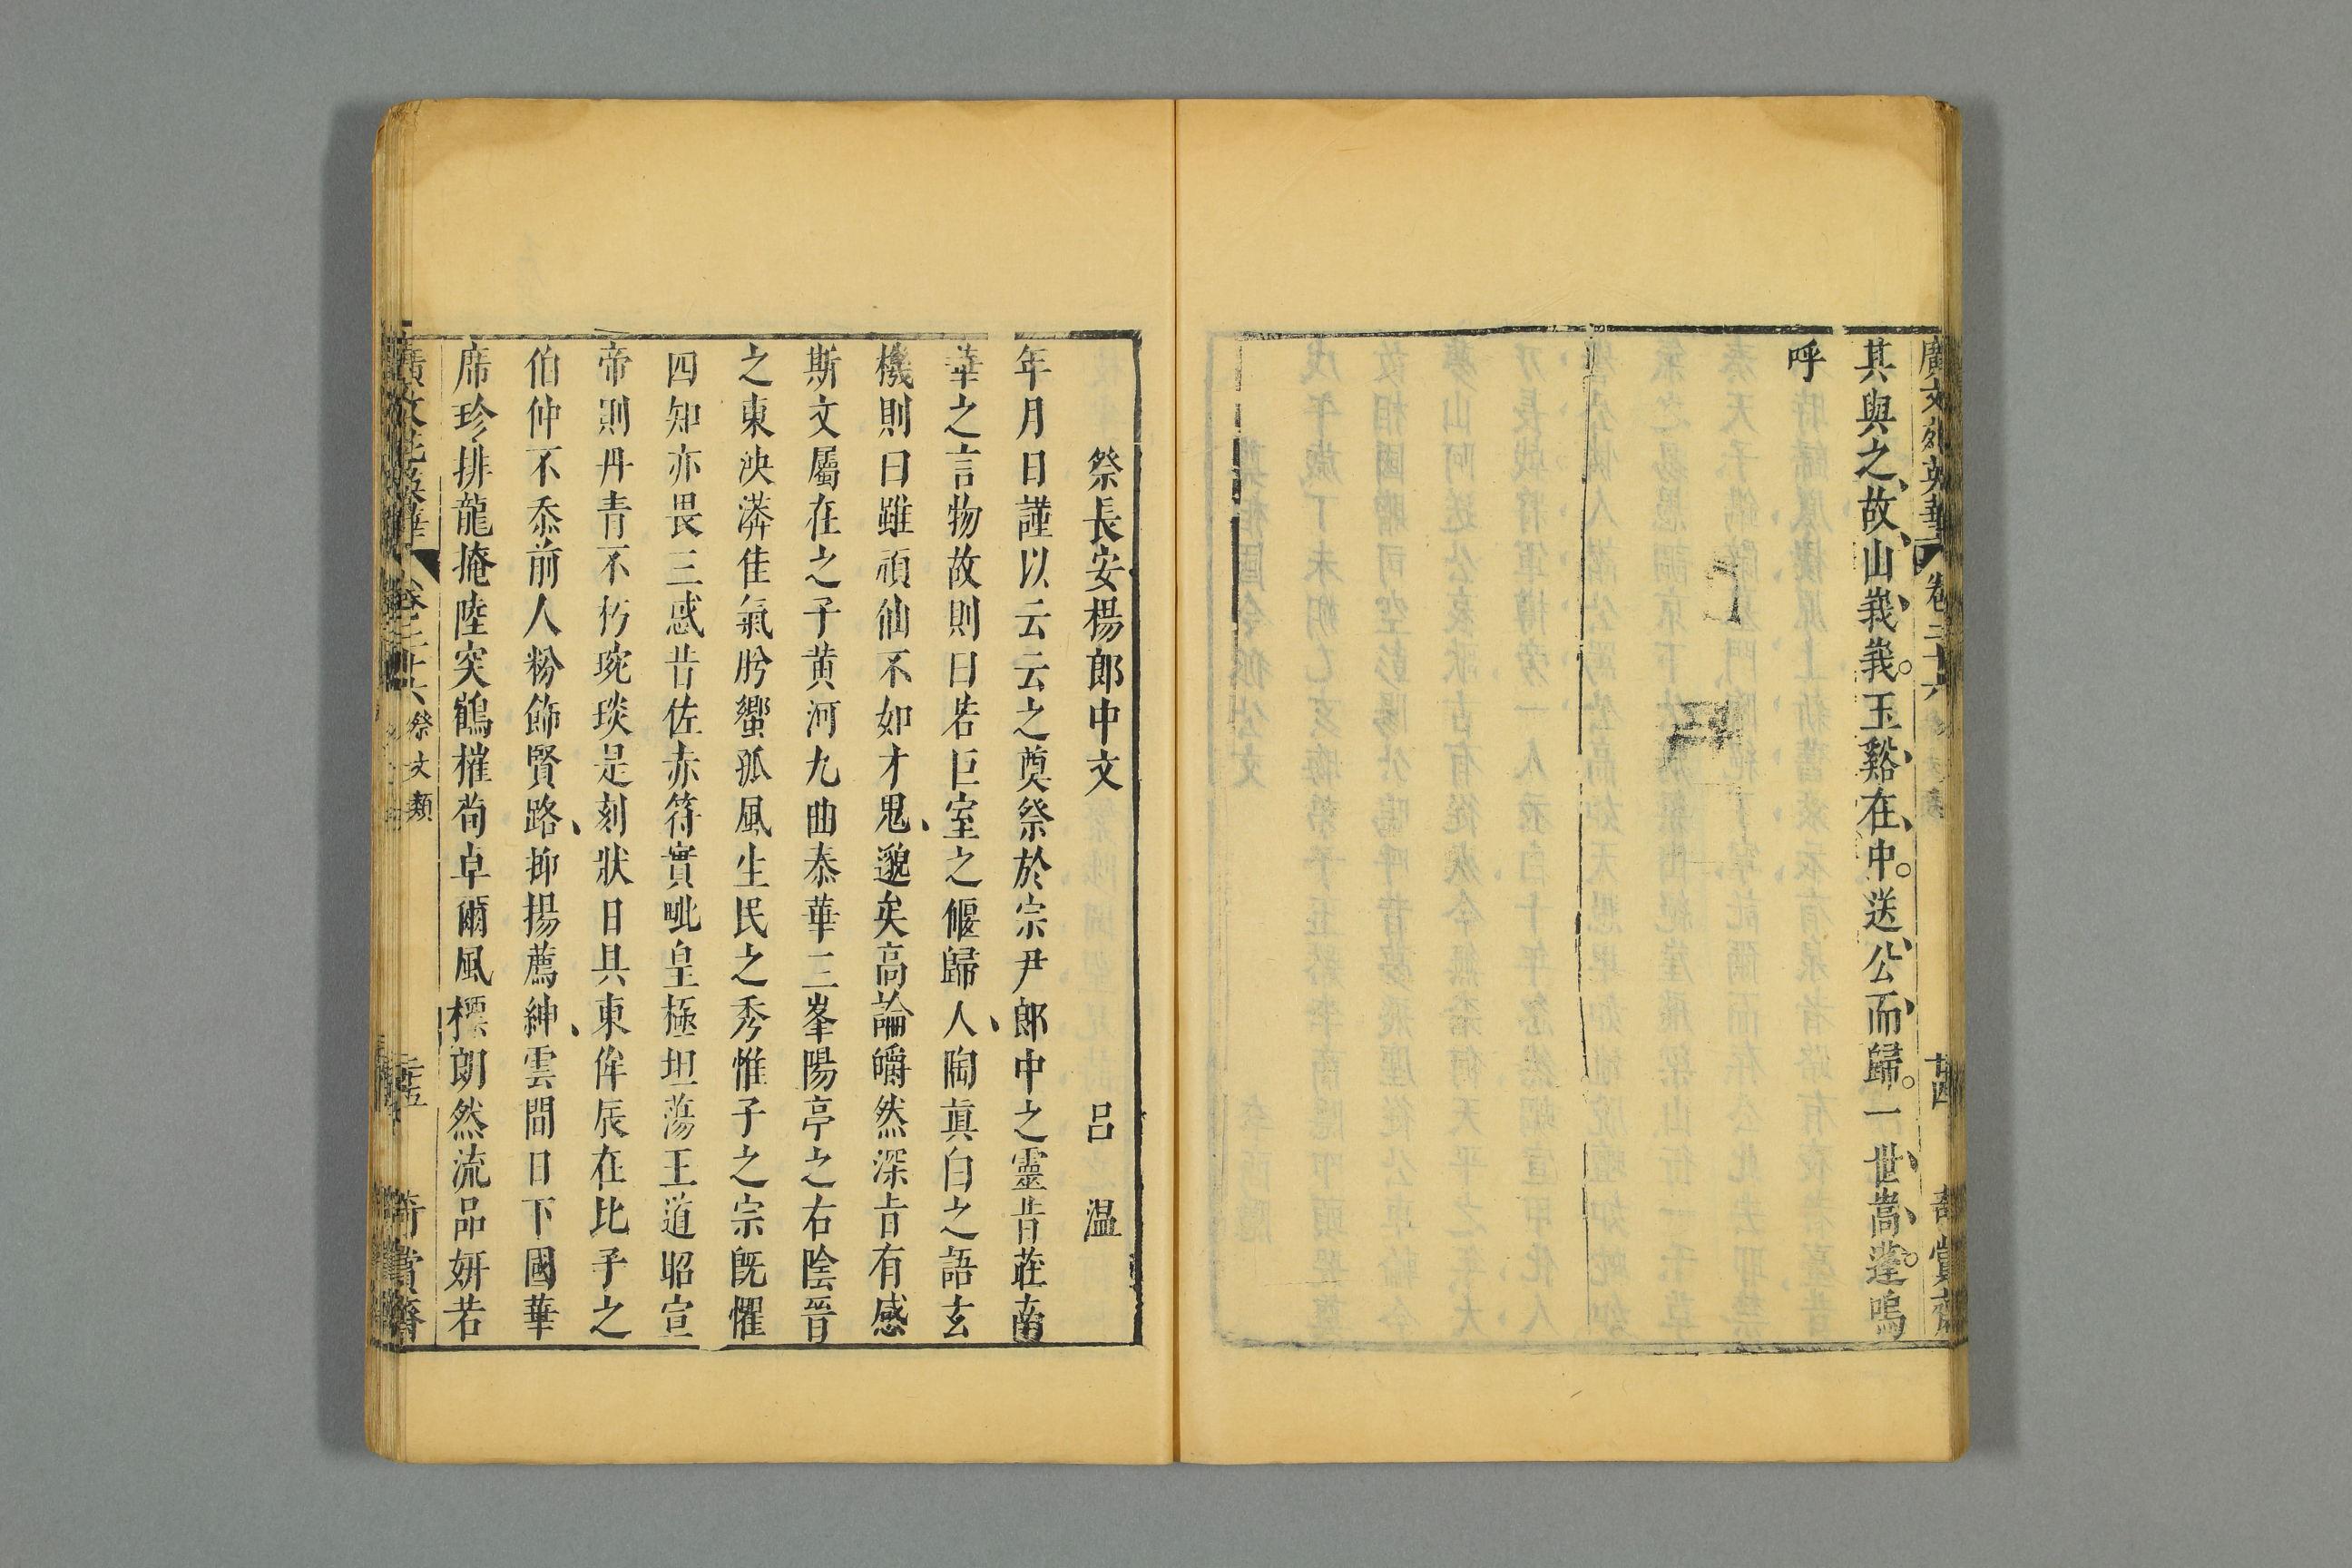 廣文苑英華 卷二十六 廿四 奇賞齋
其與之故山峩峩玉谿在中送公而歸一世蒿蓬嗚
呼
祭長安楊郎中文 呂溫
年月日謹以云云之奠祭於宗尹郎中之靈昔莊南
華之言物故則曰若巨室之偃歸人陶眞白之語玄
機則曰雖頑仙不如才鬼邈矣高論皭然深㫖有感
斯文屬在之子黄河九曲泰華三峯陽亭之右陰晉
之東泱漭佳氣肹蠁孤風生民之秀惟子之宗旣懼
四知亦畏三惑昔佐赤符實毗皇極坦蕩王道昭宣
帝則丹青不朽琬琰是刻狀日具東侔辰在比予之
伯仲不忝前人粉飾賢路抑揚薦紳雲間日下國華
席珍排龍掩陸突鶴摧荀卓爾風標朗然流品妍若
廣文苑英華 卷二十六 祭文類 二十五 奇賞齋